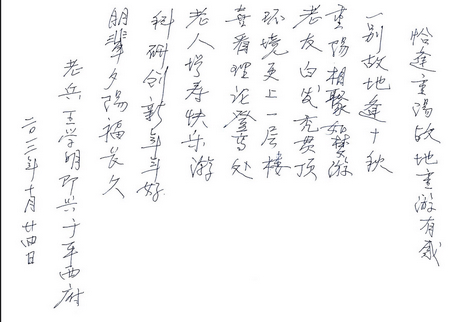 恰逢重阳故地重游有感
一别故地逢十秋
重陽相聚如梦游
老友白发充贯顶
环境更上一层楼
喜看理论登高处
老人增寿快乐游
科研创新年年好
朋辈夕陽福長久
老兵王学明即兴于车西府
二〇一二年十月廿四日